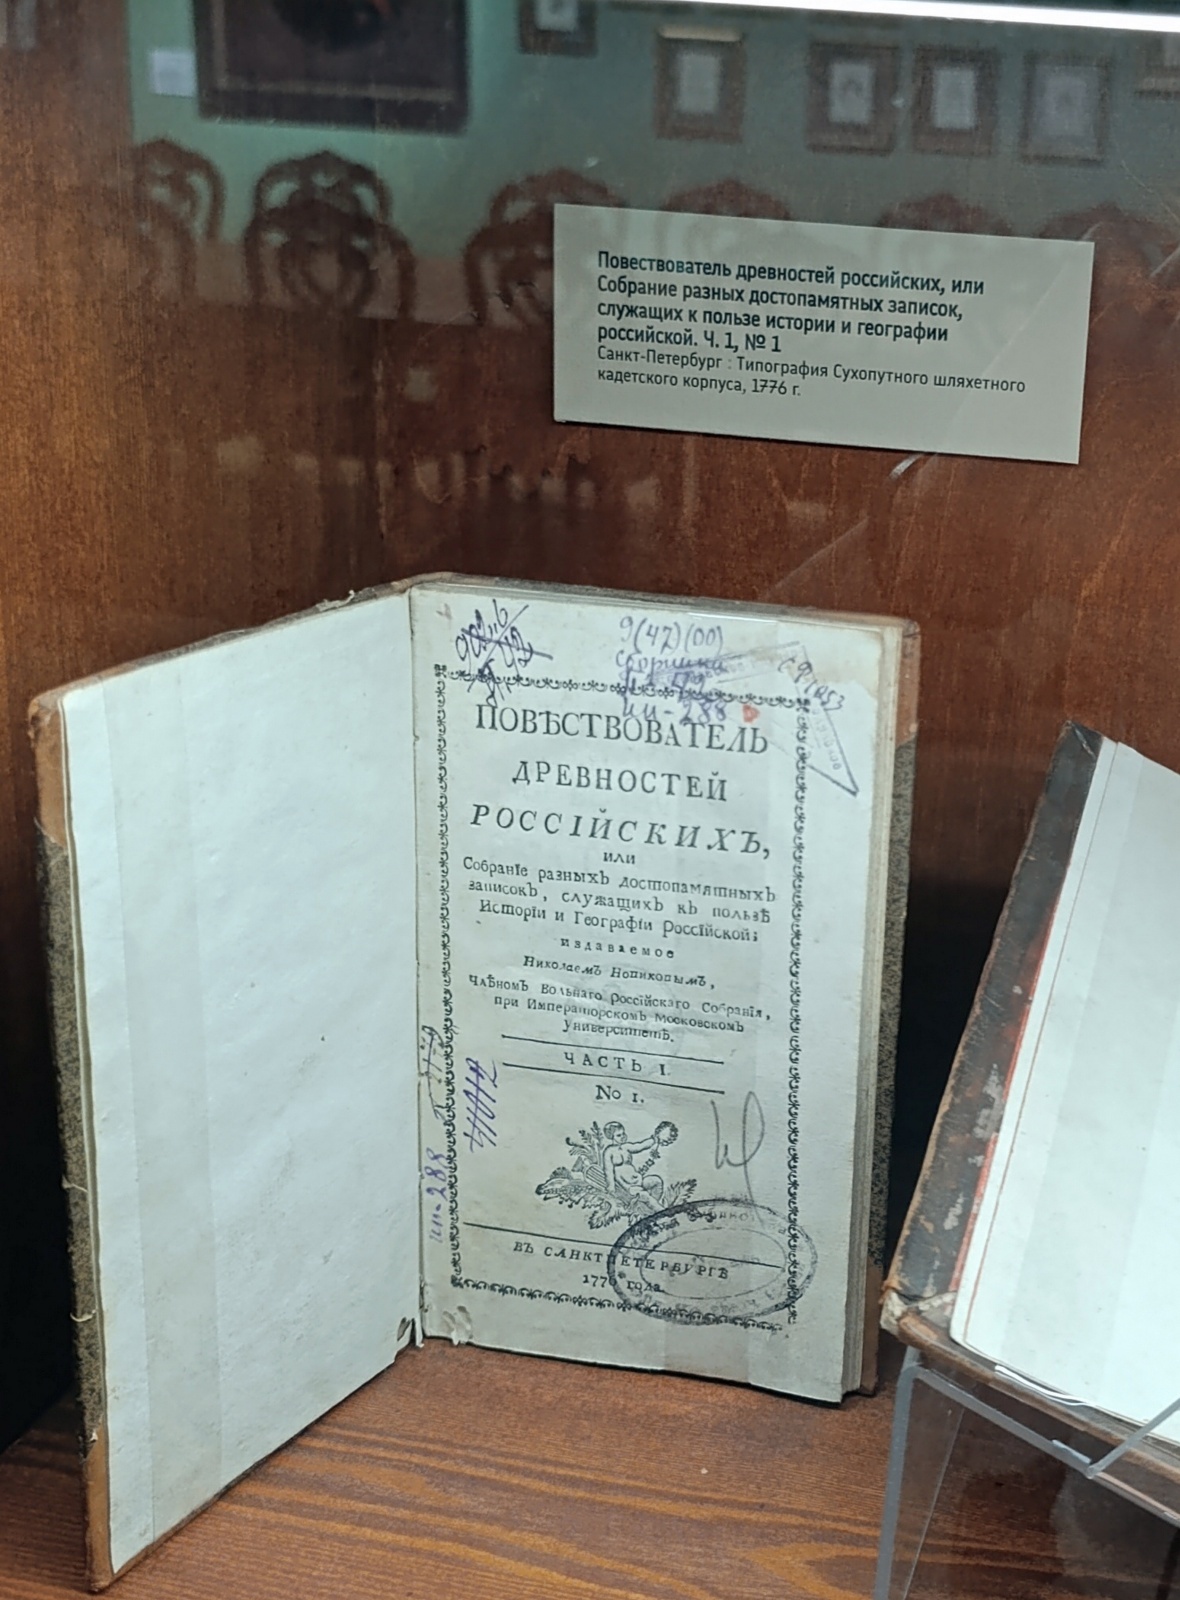 Повествователь древностей российских, или
Собрание разных достопамятных записок,
служащих к пользе истории и географии
российской. Ч. 1, № 1
Санкт-Петербург : Типография Сухопутного шляхетного
кадетского корпуса, 1776 г.
9(47)(00)
ПОВѢСТВОВАТЕЛЬ
ДРЕВНОСТЕЙ
РОССІЙСКИХЪ,
ИЛИ
Собраніе разныхъ достопамятныхъ
записокъ, служащихъ къ пользѣ
Исторіи и Географіи Россійской;
издаваемое
Николаемъ Новиковымъ,
Членомъ Вольнаго Россійскаго Собранія,
при Императорскомъ Московскомъ
Университетѣ.
ЧАСТЬ I.
No 1.
ВЪ САНКТПЕТЕРБУРГѢ
1776 года.